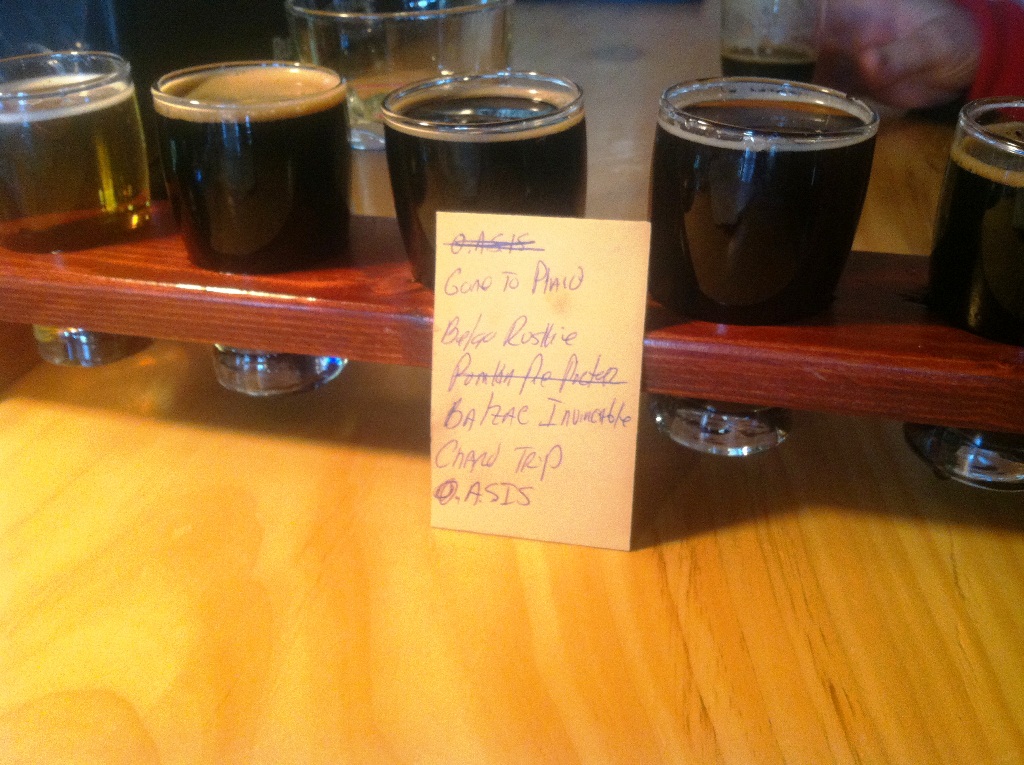 O.ASIS
Gone To Plaid
Belgo Rustkie
Pumkin Pie Porter
BAlzAC Invincible
Chard Trip
O.ASIS